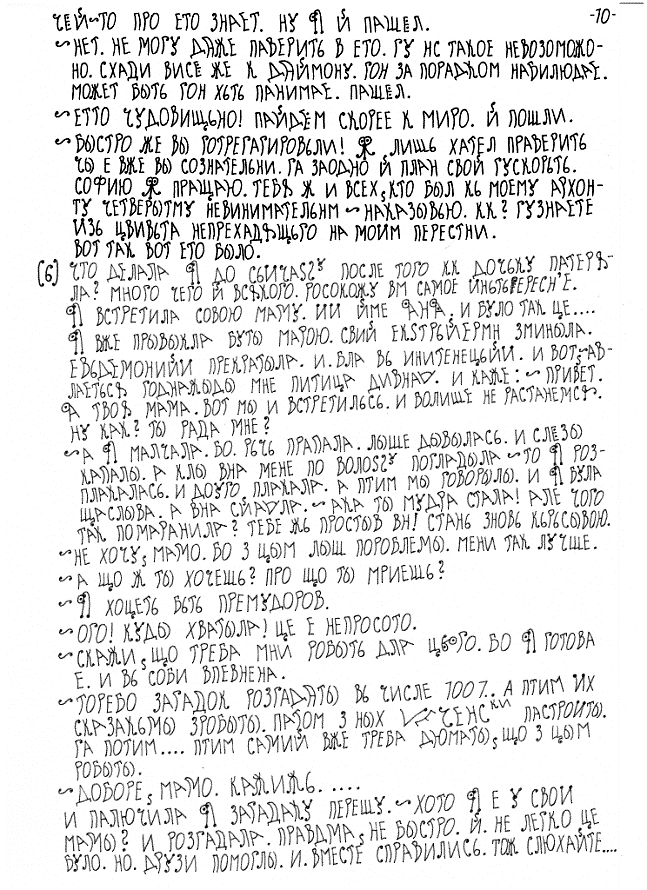 ЧЕЙ~ТО ПРО ЕТО ЗНАЕТ. НУ Я Й ПАШЕЛ. -10-
~НЕТ. НЕ МОГУ ДАЖЕ ПАВЕРИТЬ В ЕТО. ГУ НС ТАКОЕ НЕВОЗОМОЖО-
НО. СХАДИ ВИСЕ ЖЕ К ДАЙМОНУ. ГОН ЗА ПОРАДКОМ НАБИЛЮДАЕ.
МОЖЕТ БЫТЬ ГОН ХЬТЬ ПАНИМАЕ. ПАШЕЛ.
~ЕТТО ЧУДОВИЩЬНО! ПАЙДЕМ СКОРЕЕ К МИРО. Й ПОШЛИ.
~БЫСТРО ЖЕ ВЫ ГОТРЕГАТИРОВЬЛИ! Я, ЛИШЬ ХАТЕЛ ПРАВЕРИТЬ
ЧЫ Е ВЖЕ ВЫ СОЗНАТЕЛЬНИ. ГА ЗАОДНО Й ПЛАН СВОЙ ГУСКОРЬТЬ.
СОФИЮ Я ПРАЩАЮ. ТЕБЯ Ж И ВСЕХ, КТО БЫЛ КЬ МОЕМУ АРХОН-
ТУ ЧЕТВЕРЫТМУ НЕВИНИМАТЕЛЬНМ ~ НАКАЗЫВЬЮ. КК? ГУЗНАЕТЕ
ИЗЬ ЦВИВЬТА НЕПРЕХАДЯЩЬГО НА МОИМ ПЕРЕСТНИ.
ВОТ ТАК ВОТ ЕТО БЫЛО.
(6) ЧТО ДЕЛАЛА Я ДО СЬИЧАSУ ПОСЛЕ ТОГО КК ДОЧЬКУ ПАТЕРЯ-
ЛА? МНОГО ЧЕГО Й ВСЯКОГО. РОСОКОЖУ ВМ САМОЕ ИНЬТЬРЕРЕСН'Е.
Я ВСТРЕТИЛА СОВОЮ МАМУ. ИИ ЙМЕ ЯНЯ, И БУЛО ТАК ЦЕ....
Я ВЖЕ ПРЫВЫКЛА БУТЫ МАРОЮ. СВИЙ ЕКSТРЬЙЕРМН ЗМИНЫЛА.
ЕВЬДЕМОНИЙИ ПРЕКРАТЫЛА. И. ВЛА ВЬ ИНИТЕНЕЦЬИЙИ. И ВОТ~ЯВ-
ЛАЕТЬСЯ ГОДНАЖЫДЫ МНЕ ПИТИЦА ДИВНАЯ. И КАЖЕ: ~ПРИВЕТ.
Я ТВОЯ МАМА. ВОТ МЫ И ВСТРЕТИЛЬСЬ. И БОЛИШЕ НЕ РАСТАНЕМСЯ.
НУ КАК? ТЫ РАДА МНЕ?
~А Я МАЛЧАЛА. БО. РЕЧЬ ПРАПАЛА. ЛЫШЕ ДЫВЫЛАСЬ. И СЛЕЗЫ
КАПАЛЫ. А КЛЫ ВНА МЕНЕ ПО ВОЛОSSУ ПОГЛАДЫЛА ~ТО Я РОЗ-
ПЛАКАЛАСЬ. И ДОУГО ПЛАКАЛА. А ПТИМ МЫ ГОВОРЫЛЫ. И Я БУЛА
ЩАСЛЫВА. А ВНА СМІАЛА. ~ АКА ТЫ МУДРА СТАЛА! АЛЕ ЧОГО
ТАК ПОМАРАНИЛА? ТЕБЕ ЖЬ ПРОСТЫВ ВН! СТАНЬ ЗНОВЬ КЬРЬСЫВОЮ.
~НЕ ХОЧУ, МАМО. БО З ЦЫМ ЛЫШ ПОРОБЛЕМЫ. МЕНИ ТАК ЛУЧШЕ.
~А ЩО Ж ТЫ ХОЧЕШЬ? ПРО ЩО ТЫ МРИЕШЬ?
~Я ХОЦЕТЬ БЬТЬ ПРЕМУДОРОВ.
~ОГО! КУДЫ ХВАТЫЛА! ЦЕ Е НЕПРОСОТО.
~СКАЖИ, ЩО ТРЕБА МНИ РОБЫТЬ ДЛА ЦЬОГО. БО Я ГОТОВА
Е. И ВЬ СОБИ ВПЕВНЕНА.
~ТОРЕБО ЗАГАДОК РОЗГАДАТЫ ВЬ ЧИСЛЕ 1007.. А ПТИМ ИХ
СКАЗАКЬМЫ ЗРОБЫТЫ. ПАТОМ З НЫХ ЧЕНСКИ ПАСТРОИТЫ.
ГА ПОТИМ.... ПТИМ САМИЙ ВЖЕ ТРЕБА ДЮМАТЫ, ЩО З ЦЫМ
РОБЫТЫ.
~ДОБОРЕ, МАМО. КАЖИЖЬ.....
И ПАЛЮЧИЛА Я ЗАГАДАКУ ПЕРЕШУ. ~ХОТО Я Е У СВОИ
МАМЫ? И РОЗГАДАЛА. ПРАВДМА, НЕ БЫСТРО. Й. НЕ ЛЕГКО ЦЕ
БУЛО. НО. ДРУЗИ ПОМОГЛЫ. И. ВМЕСТЕ СПРАВИЛИСЬ. ТОЖ СЛЮХАЙТЕ....